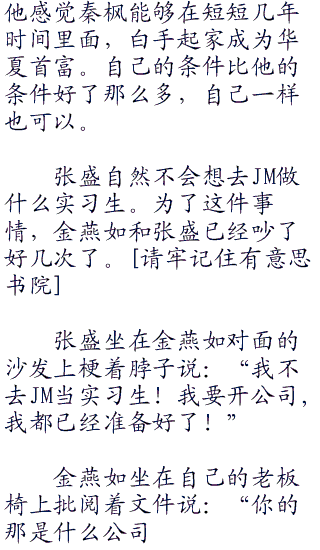 他感觉秦枫能够在短短几年
时间里面，白手起家成为华
夏首富。自己的条件比他的
条件好了那么多，自己一样
也可以。
张盛自然不会想去JM做
什么实习生。为了这件事
情，金燕如和张盛已经吵了
好几次了。[请牢记住有意思
书院]
张盛坐在金燕如对面的
沙发上梗着脖子说：“我不
去JM当实习生！我要开公司，
我都已经准备好了！”
金燕如坐在自己的老板
椅上批阅着文件说：“你的
那是什么公司